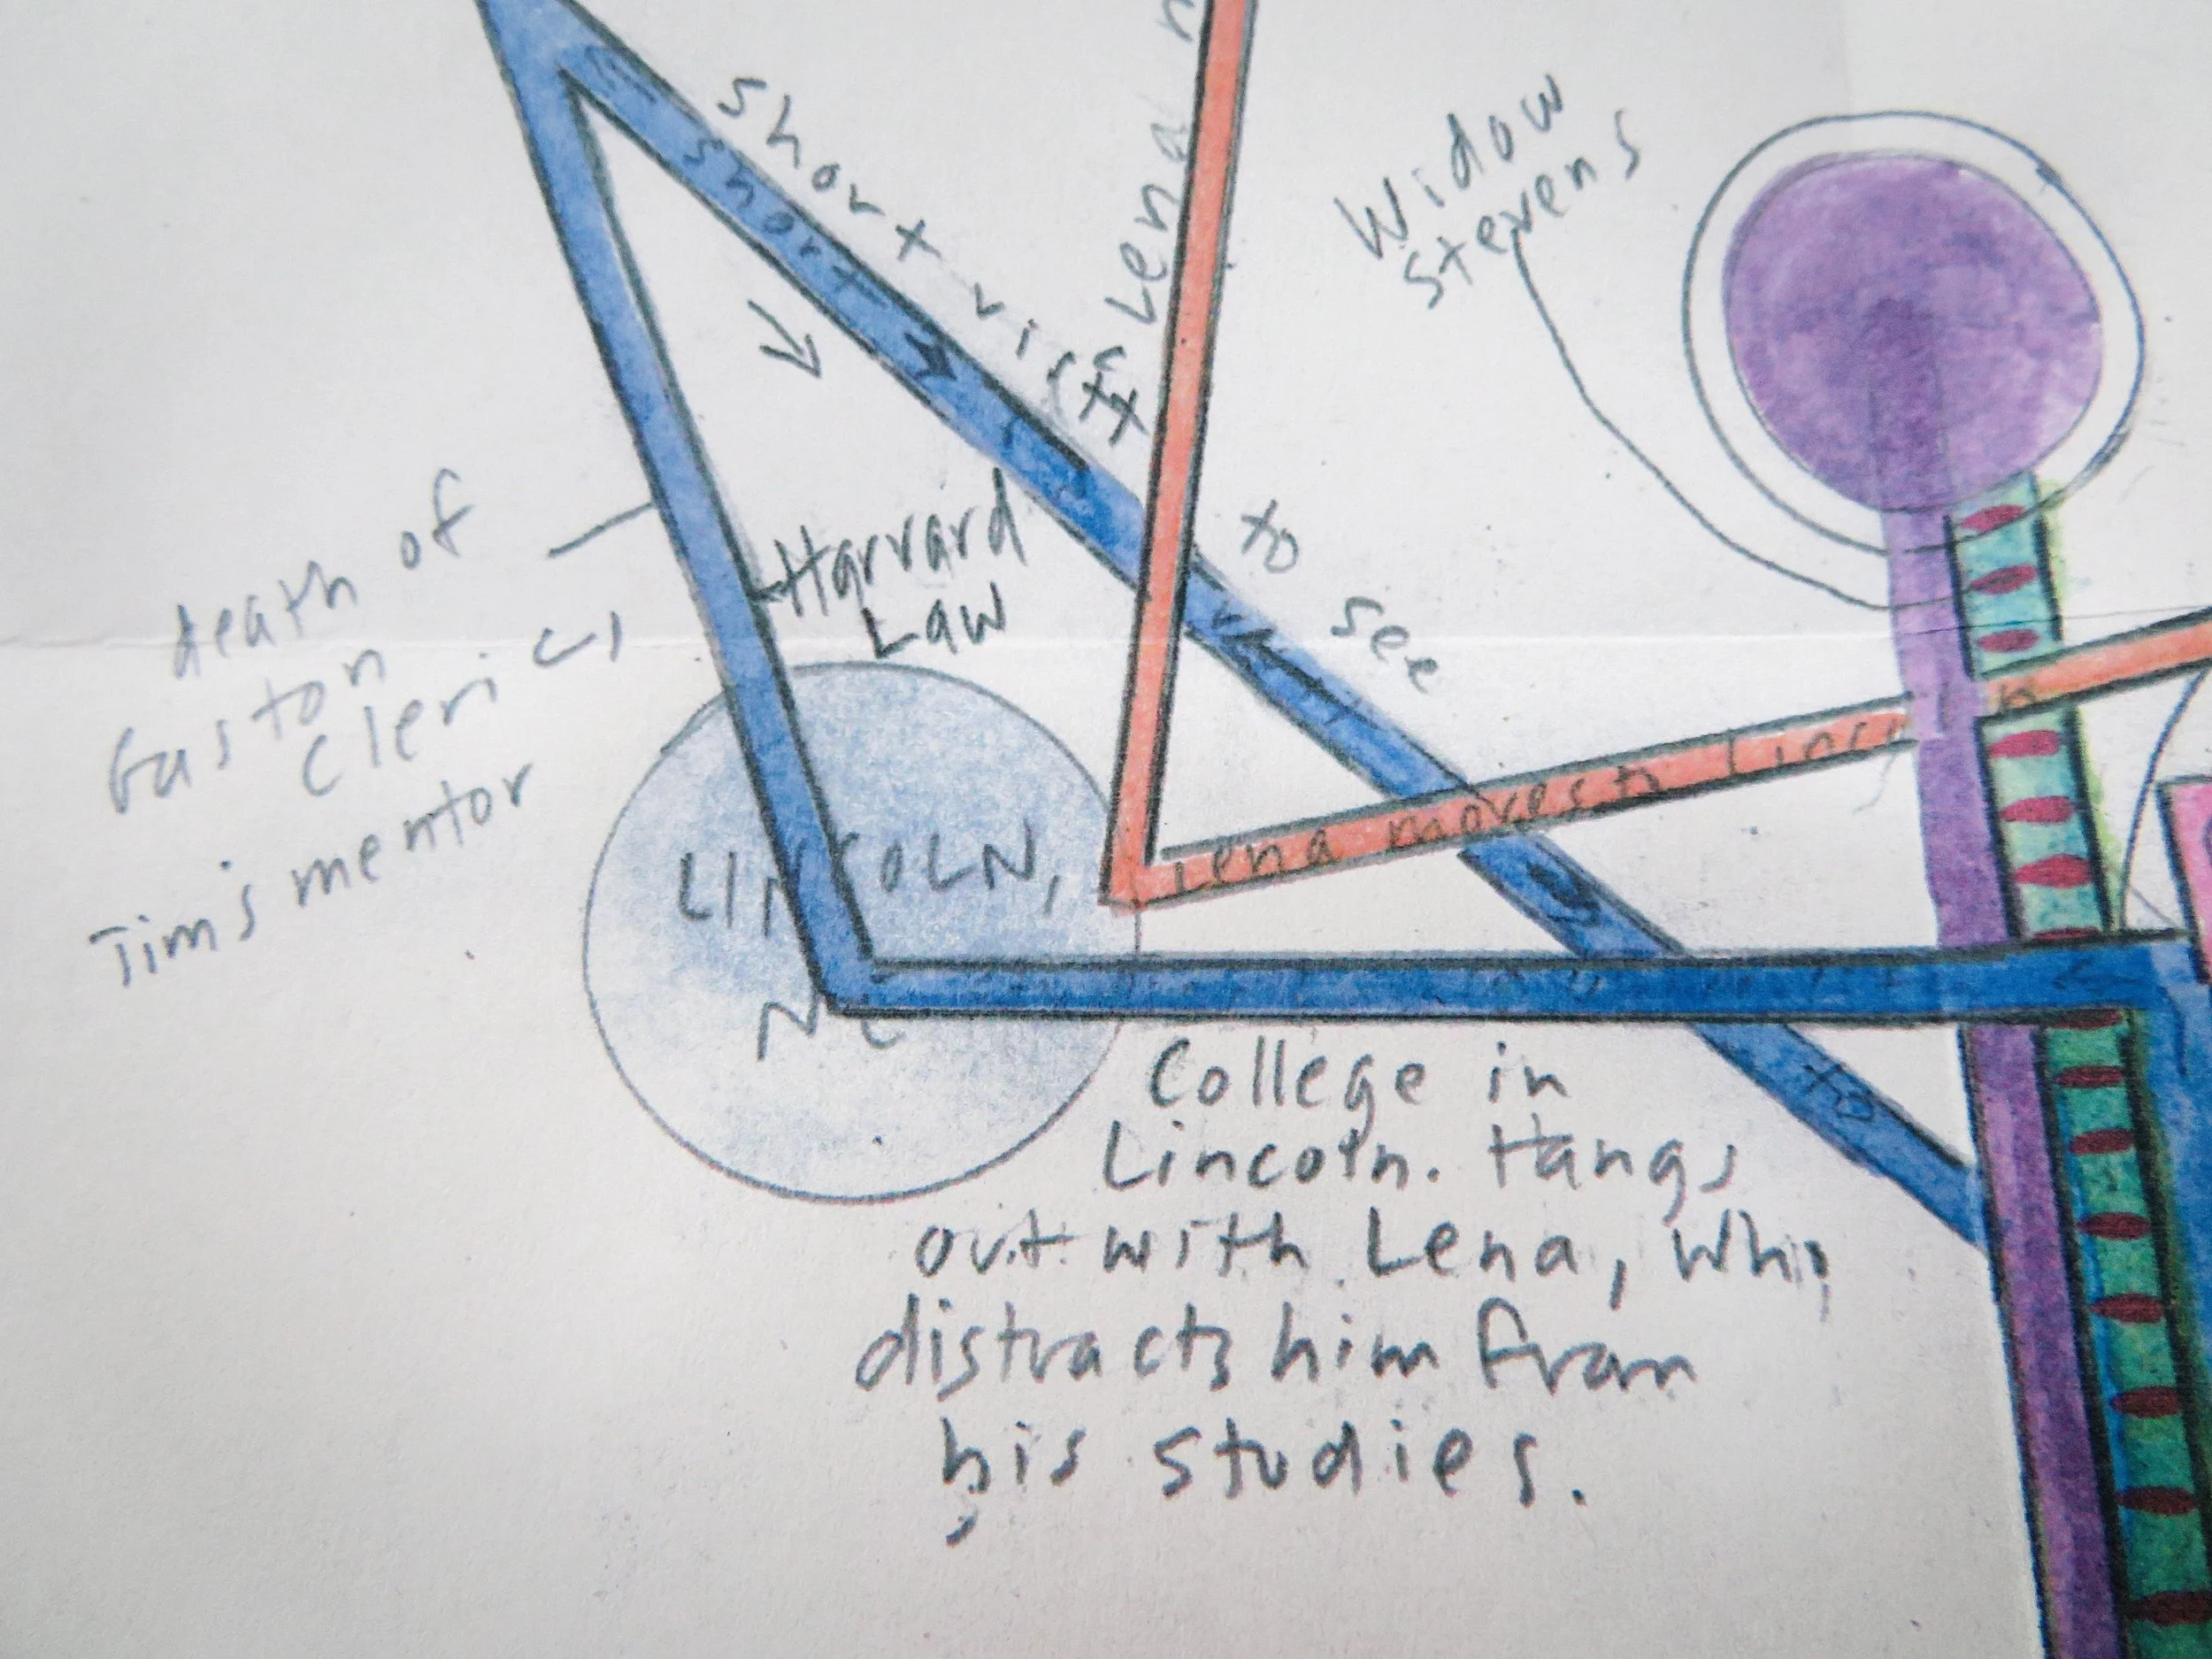 short visit
short
Lena
Widow
Stevens
to see
Harvard
Law
death of
Gaston
Cleric
Jim's mentor
LINCOLN,
NE
Lena moves to Linc
to
College in
Lincoln. Hangs
out with Lena, who
distracts him from
his studies.